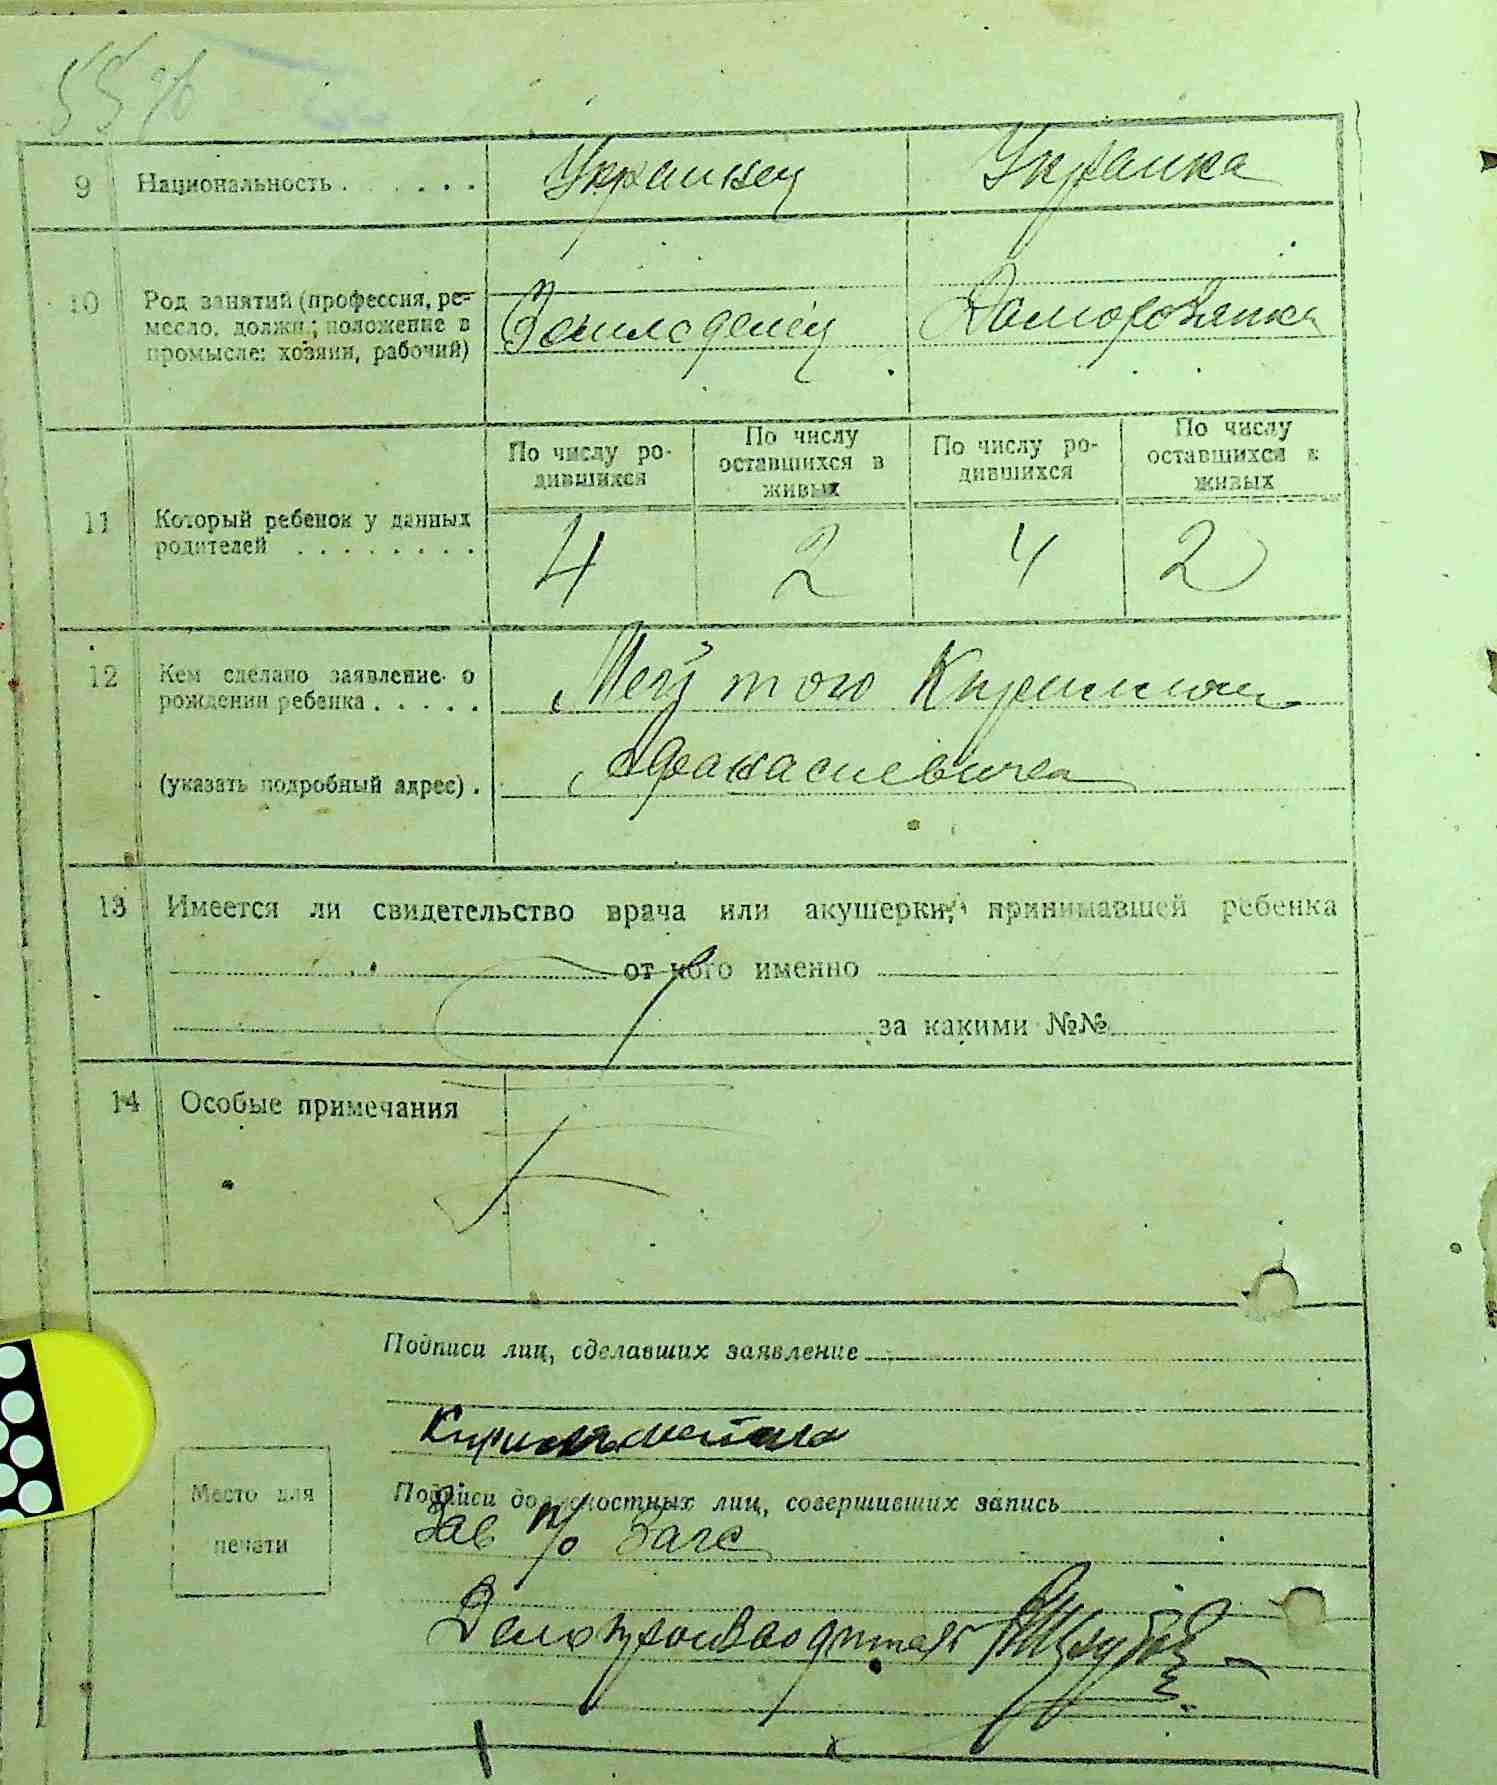 55 об
9 Национальность . . . . . . Украинец Украинка
10 Род занятий (профессия, ре-
месло, должн.; положение в
промысле: хозяин, рабочий) Земледелец Домохозяйка
11 Который ребенок у данных
родителей . . . . . . . .
По числу ро-
дившихся
По числу
оставшихся в
живых
По числу ро-
дившихся
По числу
оставшихся в
живых
4 2 4 2
12 Кем сделано заявление о
рождении ребенка . . . . .
(указать подробный адрес) .
Афанасиевича
13 Имеется ли свидетельство врача или акушерки, принимавшей ребенка
от кого именно
за какими №№
14 Особые примечания
Подписи лиц, сделавших заявление
Место для
печати
Подписи должностных лиц, совершивших запись
Зав п/о Загс
Делопроизводитель